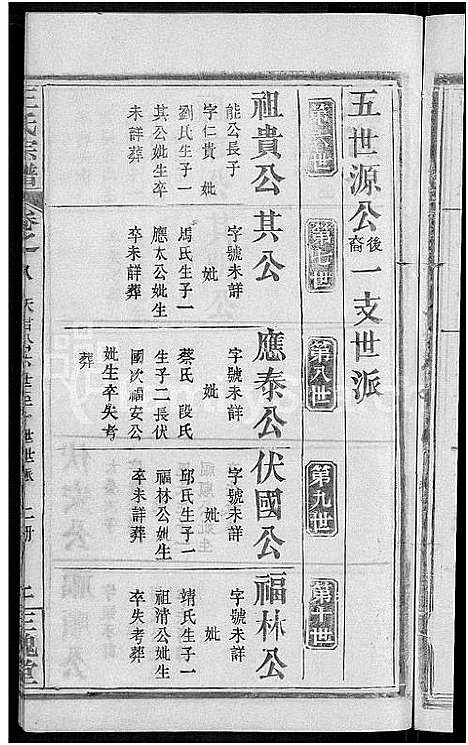 五世源公後裔一支世派
第六世
第七世
第八世
第九世
第十世
祖貴公
能公長子
字仁貴 妣
劉氏生子一
其公妣生卒
未詳葬
其公
字號未詳
妣
馬氏生子一
應太公妣生
卒未詳葬
應泰公
字號未詳
妣
蔡氏 段氏
生子二長伏
國次福安公
妣生卒失考
葬
伏國公
字號未詳
妣
邱氏生子一
福林公妣生
卒未詳葬
福林公
字號未詳
妣
靖氏生子一
祖清公妣生
卒失考葬
王氏宗譜
卷之八
三槐堂